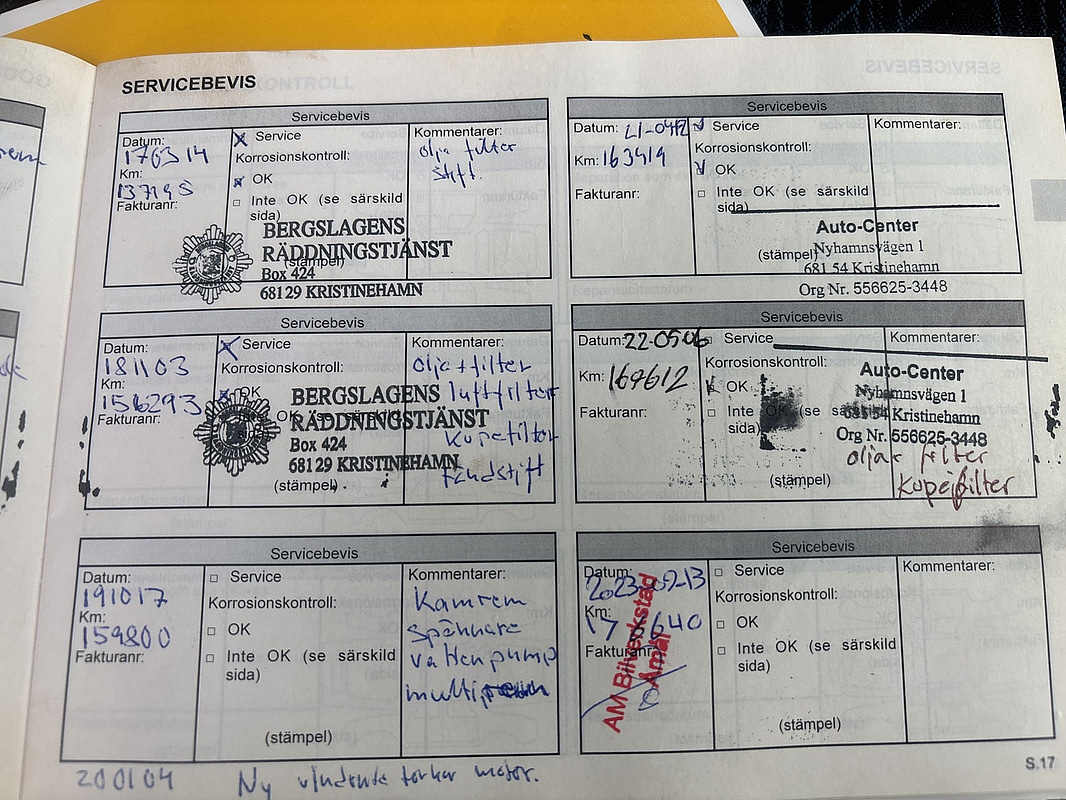 SERVICEBEVIS
Servicebevis
Datum:
170314
Km:
137195
Fakturanr:
Service
Korrosionskontroll:
OK
Inte OK (se särskild
sida)
Kommentarer:
olja filter
stift.
BERGSLAGENS
RÄDDNINGSTJÄNST
(stämpel)
Box 424
68129 KRISTINEHAMN
Servicebevis
Datum:
181103
Km:
156293
Fakturanr:
Service
OK
Kommentarer:
olja+filter
luftfilter
kupefilter
tändstift
BERGSLAGENS
RÄDDNINGSTJÄNST
Box 424
68129 KRISTINEHAMN
(stämpel)
Servicebevis
Datum:
191017
Km:
159800
Fakturanr:
Service
Korrosionskontroll:
OK
Inte OK (se särskild
sida)
(stämpel)
Kommentarer:
Kamrem
spännare
vattenpump
200104 Ny vindrute torkar motor.
Servicebevis
Datum:
Km: 163419
Fakturanr:
Service
Korrosionskontroll:
OK
Inte OK (se särskild
sida)
Kommentarer:
Auto-Center
(stämpel)
Nyhamnsvägen 1
681 54 Kristinehamn
Org Nr. 556625-3448
Servicebevis
Datum: 22-0506
Km: 169612
Fakturanr:
Service
Korrosionskontroll:
OK
Inte OK (se särskild
sida)
(stämpel)
Kommentarer:
Auto-Center
Nyhamnsvägen 1
681 54 Kristinehamn
Org Nr. 556625-3448
filter
kupefilter
Servicebevis
Datum:
Km:
Fakturanr:
AM Bilverkstad
Åmål
Service
Korrosionskontroll:
OK
Inte OK (se särskild
sida)
(stämpel)
Kommentarer:
S.17